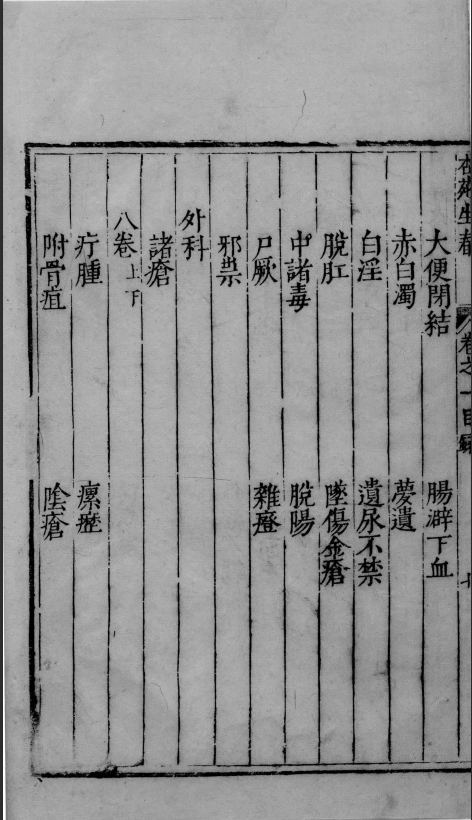 杏苑生春 卷之一目錄 七
大便閉結 腸澼下血
赤白濁 夢遺
白淫 遺尿不禁
脫肛 墜傷金瘡
中諸毒 脫腸
尸厥 雜癧
邪祟
外科
諸瘡
八卷上下
疔腫 瘰癧
附骨疽 陰瘡